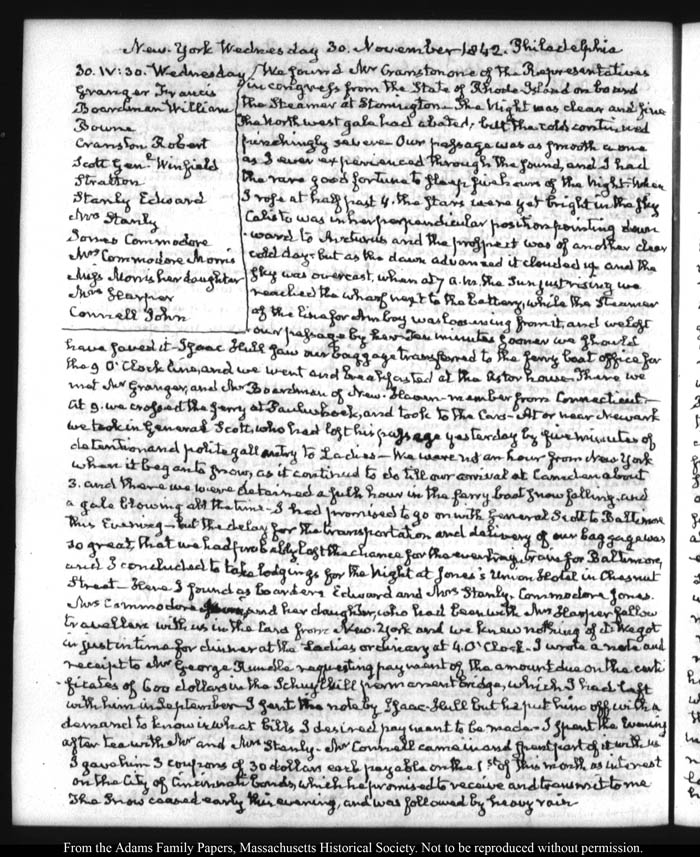 New-York Wednesday 30. November 1842. Philadelphia
30. IV: 30. Wednesday
Granger Francis
Boardman William
Bowne
Cranston Robert
Scott Genl. Winfield
Stratton
Stanly Edward
Mrs Stanly
Jones Commodore
Mrs Commodore Morris
Miss Morris her daughter
Mrs Harper
Connell John
We found Mr Cranston one of the Representatives
in congress from the State of Rhode Island on board
the Steamer at Stonington. The Night was clear and fine
the North west gale had abated, but the cold continued
pinchingly severe. Our passage was as smooth a one
as I ever experienced through the Sound, and I had
the rare good fortune to sleep five hours of the Night. When
I rose at half past 4. the Stars were yet bright in the Sky
Calisto was in her perpendicular position pointing down
-ward to Arcturus and the prospect was of another clear
cold day. but as the dawn advanced it clouded up and the
Sky was overcast, when at 7 a.m. the Sun just rising we
reached the wharf next to the Battery, while the Steamer
of the line for Amboy was loosening from it, and we lost
our passage by her. Ten minutes sooner we should
have saved it. Isaac Hull saw our baggage transferred to the ferry boat office for
the 9 O'Clock line, and we went and breakfasted at the Astor house. There we
met Mr Granger, and Mr Boardman of New-Haven member from Connecticut.
At 9. we crossed the ferry at Paulus hook, and took to the Cars. At or near Newark
we took in General Scott, who had lost his passage yesterday by five minutes of
detention and polite gallantry to Ladies. We were not an hour from New York
when it began to snow, as it continued to do till our arrival at Camden about
3. and there we were detained a full hour in the ferry boat Snow falling, and
a gale blowing all the time. I had promised to go on with General Scott to Baltimore
this Evening. but the delay for the transportation and delivery of our baggage was
so great, that we had probably lost the chance for the evening train for Baltimore,
and I concluded to take lodgings for the Night at Jones's Union Hotel in Chesnut
Street. Here I found as boarders Edward and Mrs Stanly. Commodore Jones.
Mrs Commodore and her daughter, who had been with Mrs Harper fellow
travellers with us in the Cars from New-York and we knew nothing of it. We got
in just in time for dinner at the Ladies ordinary at 4. O'Clock. I wrote a note and
receipt to Mr George Rundle requesting payment of the amount due on the certi
-ficates of 600 dollars in the Schuylkill permanent bridge, which I had left
with him in September. I sent the note by Isaac Hull but he put him off with a
demand to know in what bills I desired payment to be made. I spent the Evening
after tea with Mr and Mrs Stanly. Mr Connell came in and spent part of it with us
I gave him 3 coupons of 30 dollars each payable on the 1st of this month as interest
on the City of Cincinnati bonds, which he promised to receive and transmit to me
The Snow ceased early this evening, and was followed by heavy rain
From the Adams Family Papers, Massachusetts Historical Society. Not to be reproduced without permission.